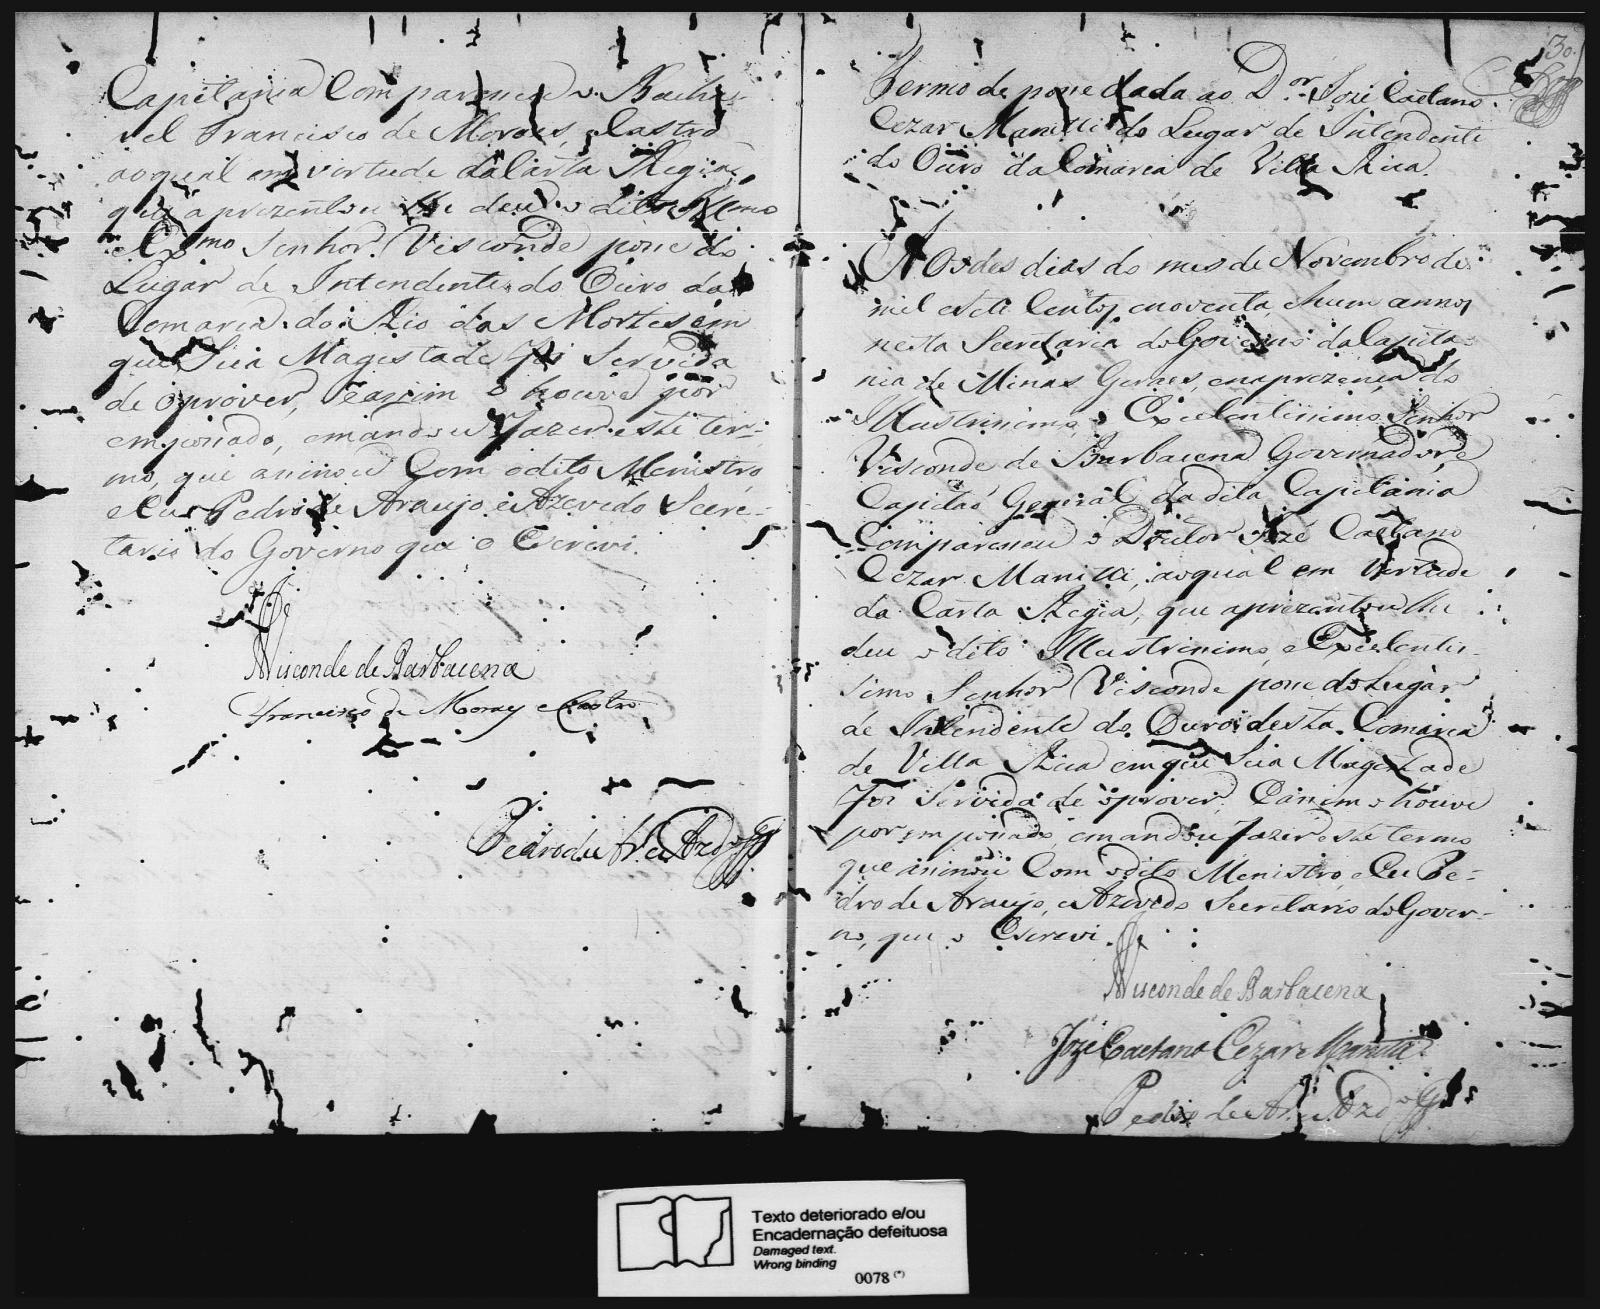 Capitania Compareceu o Bacha-
rel Francisco de Moraes, Castro
ao qual em virtude da Carta Regia,
que aprezentou lhe deu o dito Illmo
e Exmo Senhor Visconde posse do
Lugar de Intendente do Ouro da
Comarca do Rio das Mortes em
que Sua Magestade foi Servida
de o prover, e assim o houve por
empossado, e mandou fazer este ter-
mo, que assinou Com o dito Menistro
e Eu Pedro de Araujo e Azevedo Secre-
tario do Governo que o Escrevi.
Visconde de Barbacena
Francisco de Moraes e Castro
Pedro de Ar.o e Azd.o
30
Termo de posse dada ao D.or José Caetano
Cezar Manitti do Lugar de Intendente
do Ouro da Comarca de Villa Rica.
Aos des dias do mes de Novembro de
mil e sete Centos, e noventa, e hum annos
nesta Secretaria do Governo da Capita-
nia de Minas Geraes, e na prezença do
Illustrissimo, e Excelentissimo Senhor
Visconde de Barbacena Governador, e
Capitaõ General da dita Capitania
Compareceu o Doutor José Caetano
Cezar Manitti, ao qual em Vertude
da Carta Regia, que aprezentou lhe
deu o dito Illustrissimo, e Excelentis-
simo Senhor Visconde posse do Lugar
de Intendente do Ouro desta Comarca
de Villa Rica em que Sua Magestade
foi Servida de o prover, e assim o houve
por empossado, e mandou fazer este termo
que assinou Com o dito Menistro, e Eu Pe-
dro de Araujo, e Azevedo Secretario do Gover-
no, que o Escrevi.
Visconde de Barbacena
José Caetano Cezar Manitti
Pedro de Ar.o e Azd.o
Texto deteriorado e/ou
Encadernação defeituosa
Damaged text.
Wrong binding
0078 (*)